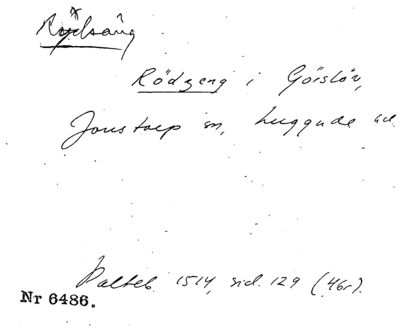 Rydsäng
Rödzeng i Görslöv,
Jonstorp sn, Luggude hd.
Palteb. 1514, sid. 129 (46r).
Nr 6486.